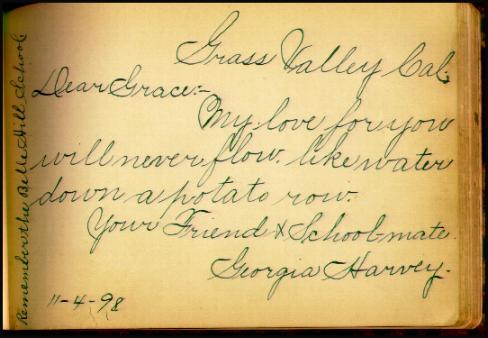 Grass Valley Cal.
Dear Grace:-
My love for you
will never flow. like water
down a potato row.
Your Friend & School-mate.
Georgia Harvey.
11-4-98
Remember the Belle Hill School